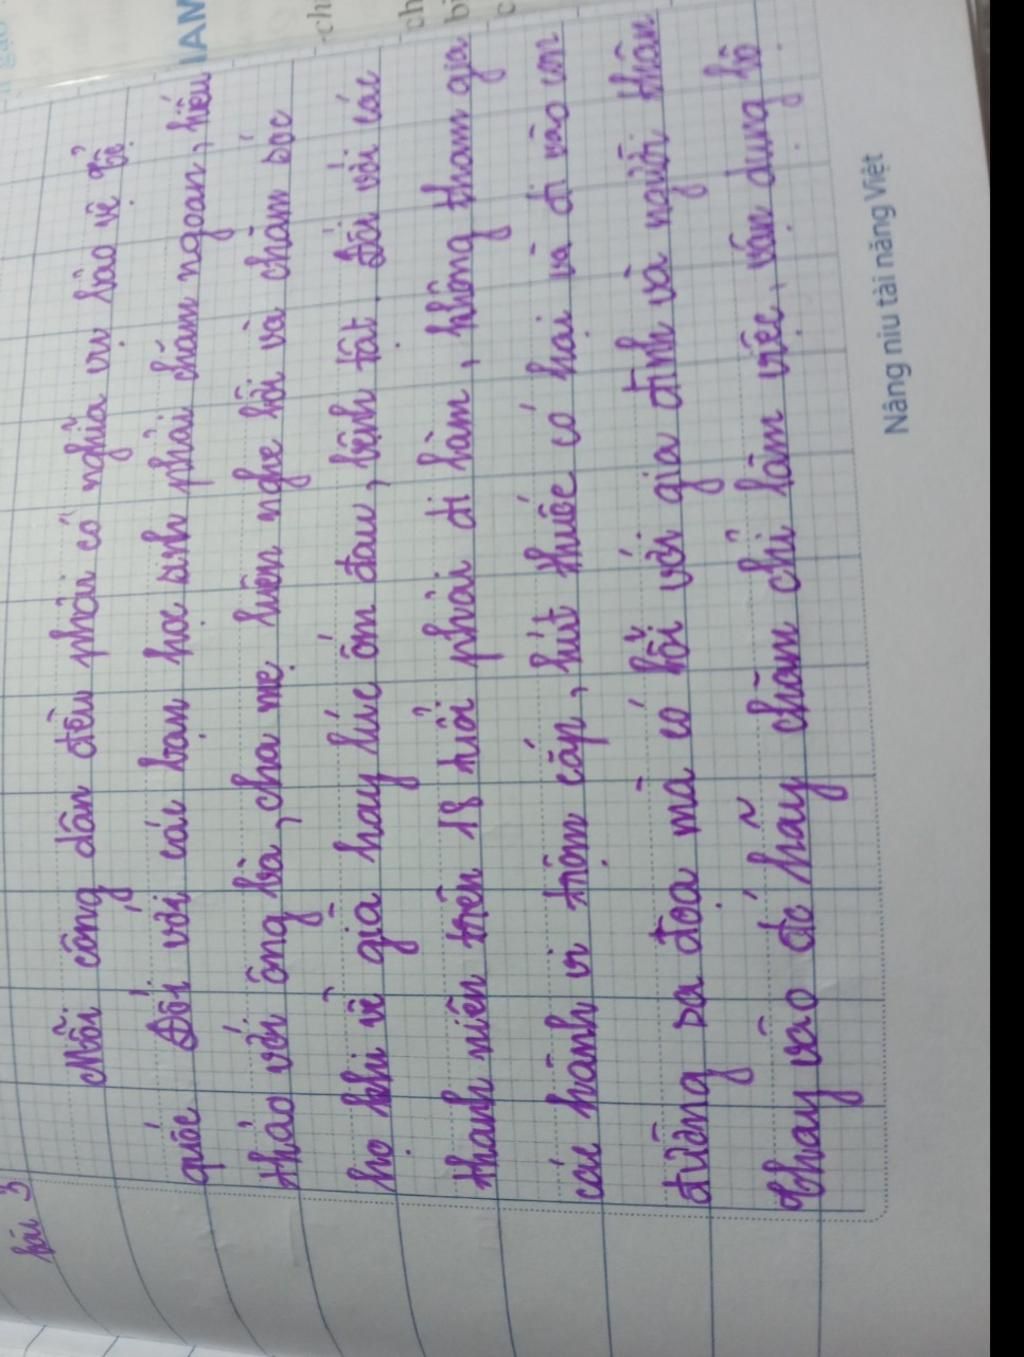 bài 3
Mỗi công dân đều phải có nghĩa vụ bảo vệ tổ
quốc Đối với các bạn học sinh phải chăm ngoan, hiếu
thảo với ông bà, cha mẹ luôn nghe lời và chăm sóc
họ khi về già hay lúc ốm đau, bệnh tật. Đối với các
thanh niên trên 18 tuổi phải đi làm, không tham gia
các hành vi trộm cắp, hút thuốc có hại và đi vào con
đường sa đọa mà có lỗi với gia đình và người thân
thay vào đó hãy chăm chỉ làm việc, vận dụng hô
Nâng niu tài năng Việt
IAM
ch